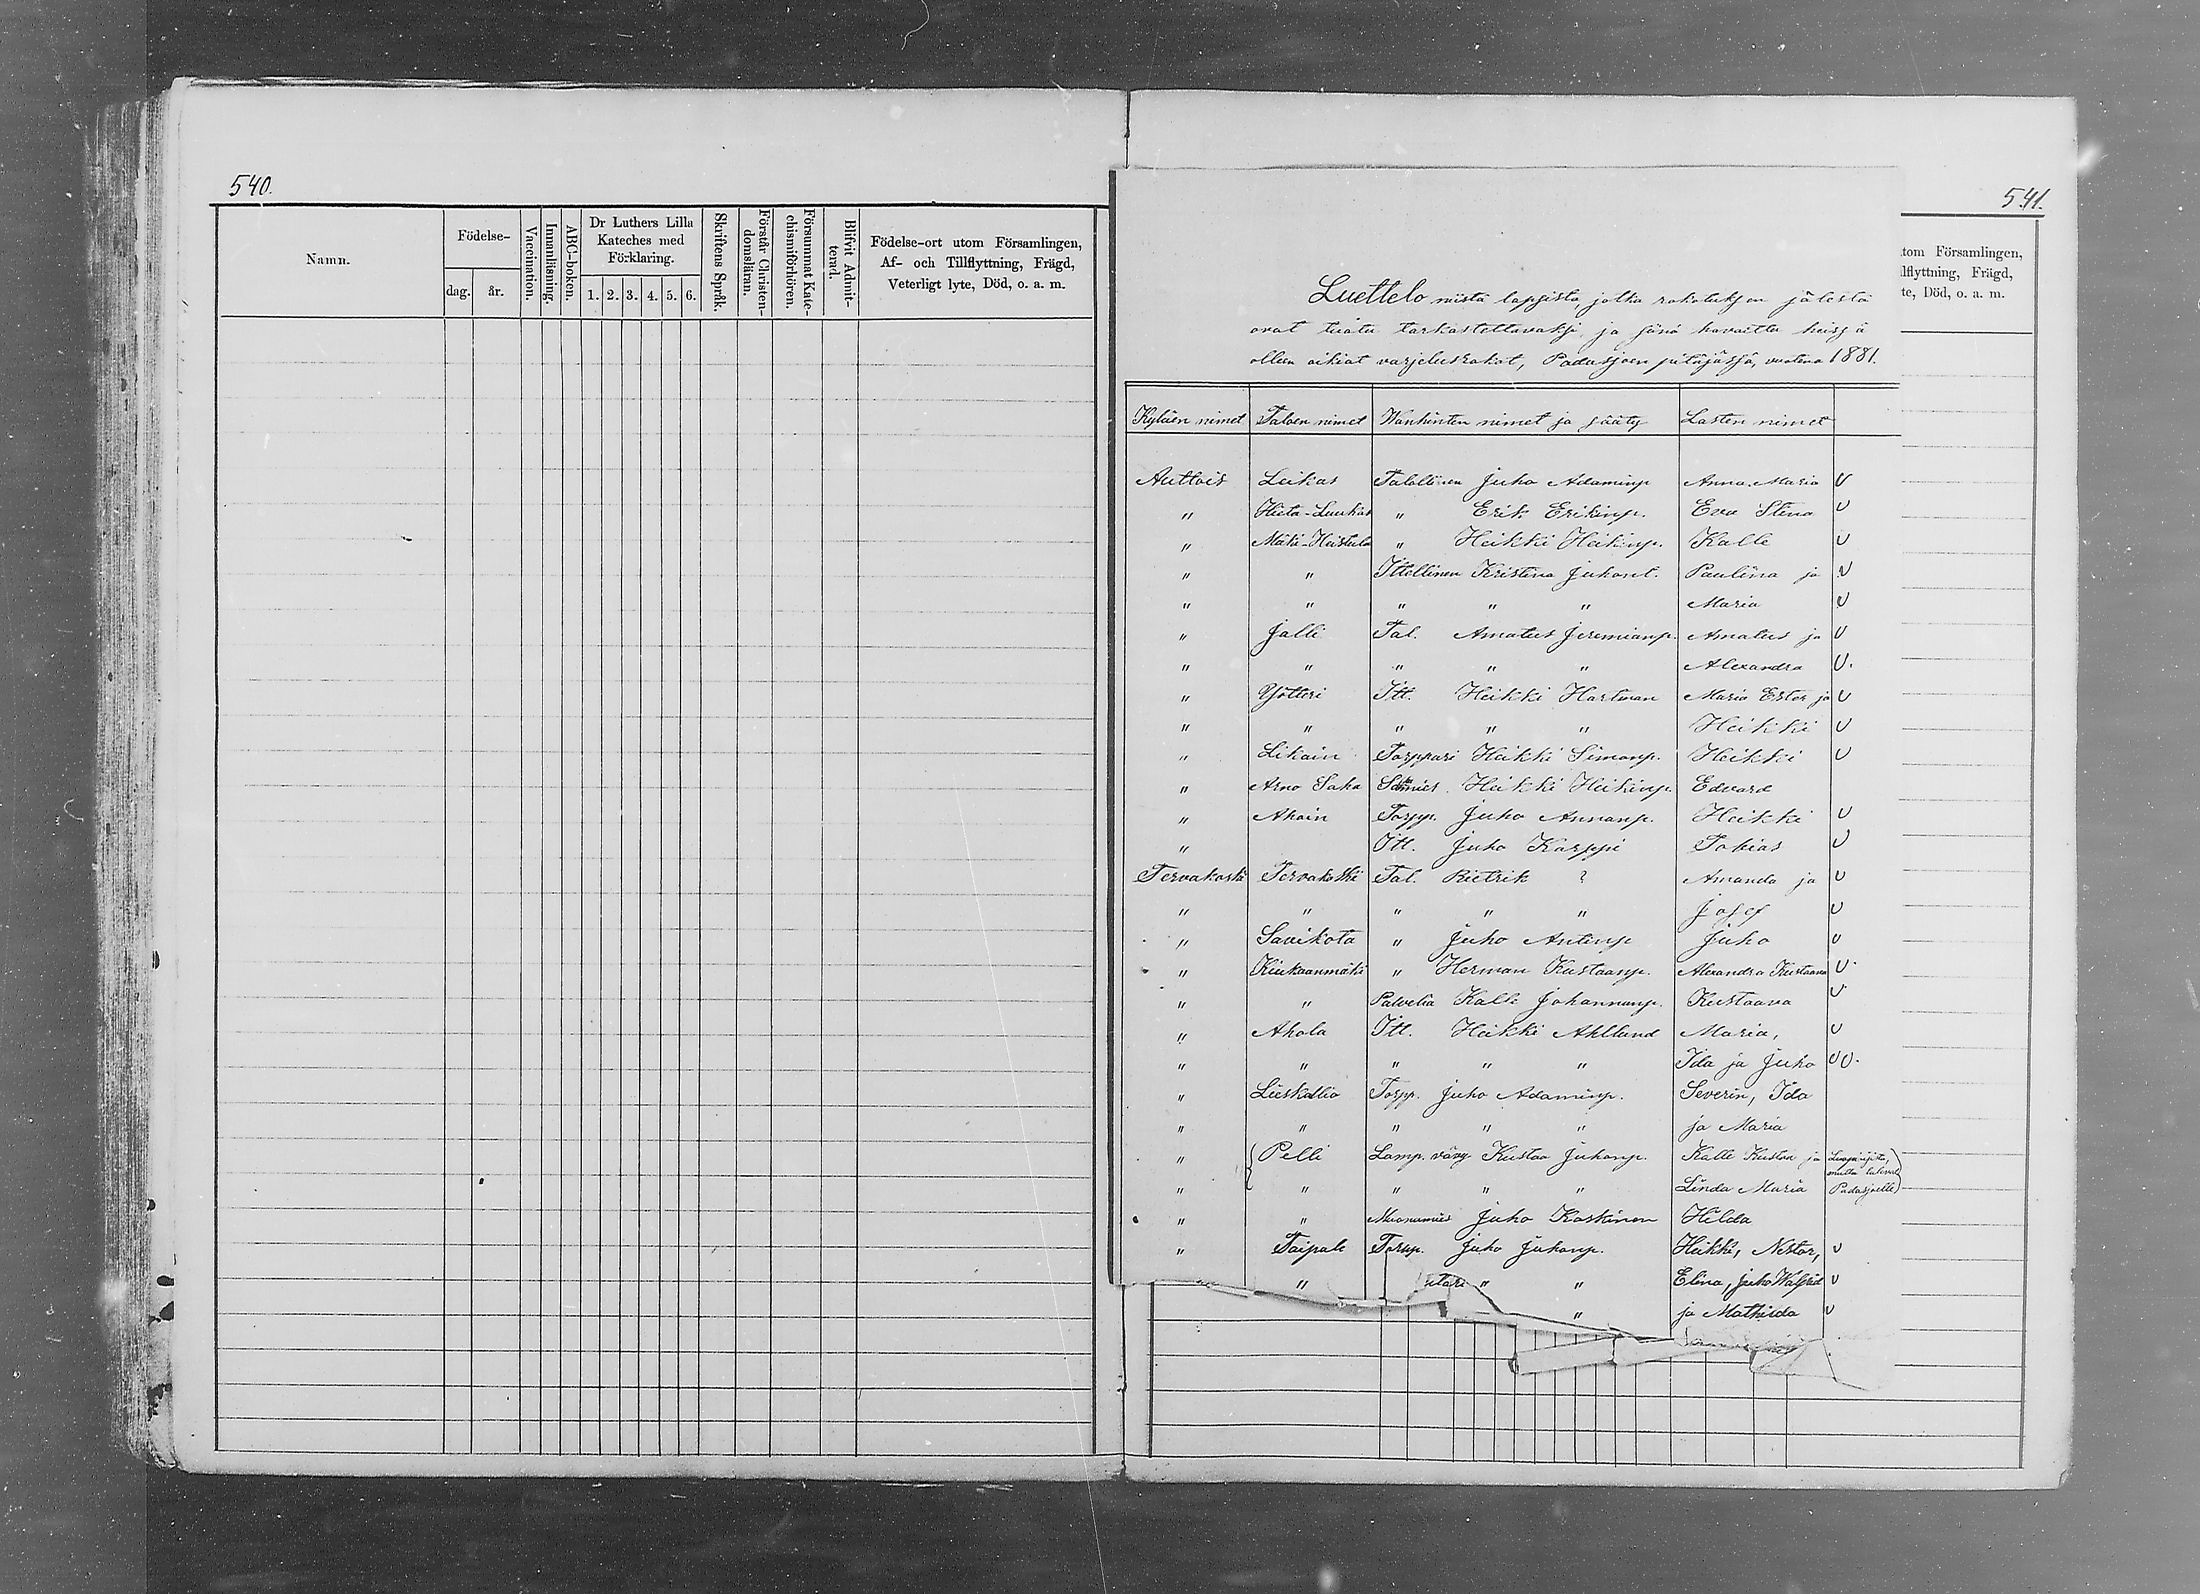 540.
Namn.
Födelse-
dag. år.
Vaccination.
Innanläsning.
ABC-boken.
Dr Luthers Lilla
Kateches med
Förklaring.
1. 2. 3. 4. 5. 6.
Skriftens Språk.
Förstår Christen-
domsläran.
Försummat Kate-
chismiförhören.
Blifvit Admit-
terad.
Födelse-ort utom Församlingen,
Af- och Tillflyttning, Frägd,
Veterligt lyte, Död, o. a. m.
541.
tom Församlingen,
llflyttning, Frägd,
te, Död, o. a. m.
Luettelo niistä lapsista, jotka rokotuksen jälestä
ovat tuotu tarkastettavaksi ja jänä havaittu heissä
olleen oikiat varjelusrokot, Padasjoen pitäjässä, vuotena 1881.
Kyläen nimet Taloen nimet Wanhinten nimet ja sääty Lasten nimet
Auttois Leikas Talollinen Juho Adaminp Anna Maria v
" Hieta-Luukas " Erik Erikinp. Eva Stina v
" Mäki-Heistula " Heikki Heikinp. Kalle v
" " Ittellinen Kristina Juhont. Paulina ja v
" " " " " Maria v
" Jalli Tal. Amatus Jeremianp. Amatus ja v
" " " " " Alexandra v.
" Yötteri Itt. Heikki Hartman Maria Ester ja v
" " " " " Heikki v
" Likain Torppari Heikki Simonp. Heikki v
" Arno Saha Heikki Heikinp. Edvard
" Ahoin Torpp. Juho Annanp. Heikki v
" Itt. Juho Karppi Tobias v
Tervakoski Tervakoski Tal. Rietrik ? Amanda ja v
" " " " " Josef v
" Savikota " Juho Antinp Juho v
" Kiukaanmäki " Herman Kustaanp. Alexandra Kustaava v
" " Palvelia Kalle Johannanp. Kustaava v
" Ahola Itt. Heikki Ahllund Maria, v
" " " " " Ida ja Juho vv.
" Lieskallio Torpp. Juho Adaminp. Severin, Ida
" " " " " ja Maria
" Pelli Lamp. väry Kustaa Juhonp. Kalle Kustaa ja
mutta tulevat
" " " " " Linda Maria Padasjoelle)
" " Muonamies Juho Koskinen Hilda
" Taipale Torpp. Juho Juhonp. Heikki, Nestor, v
" " " Elina, Juho Walfrid v
" ja Mathilda v